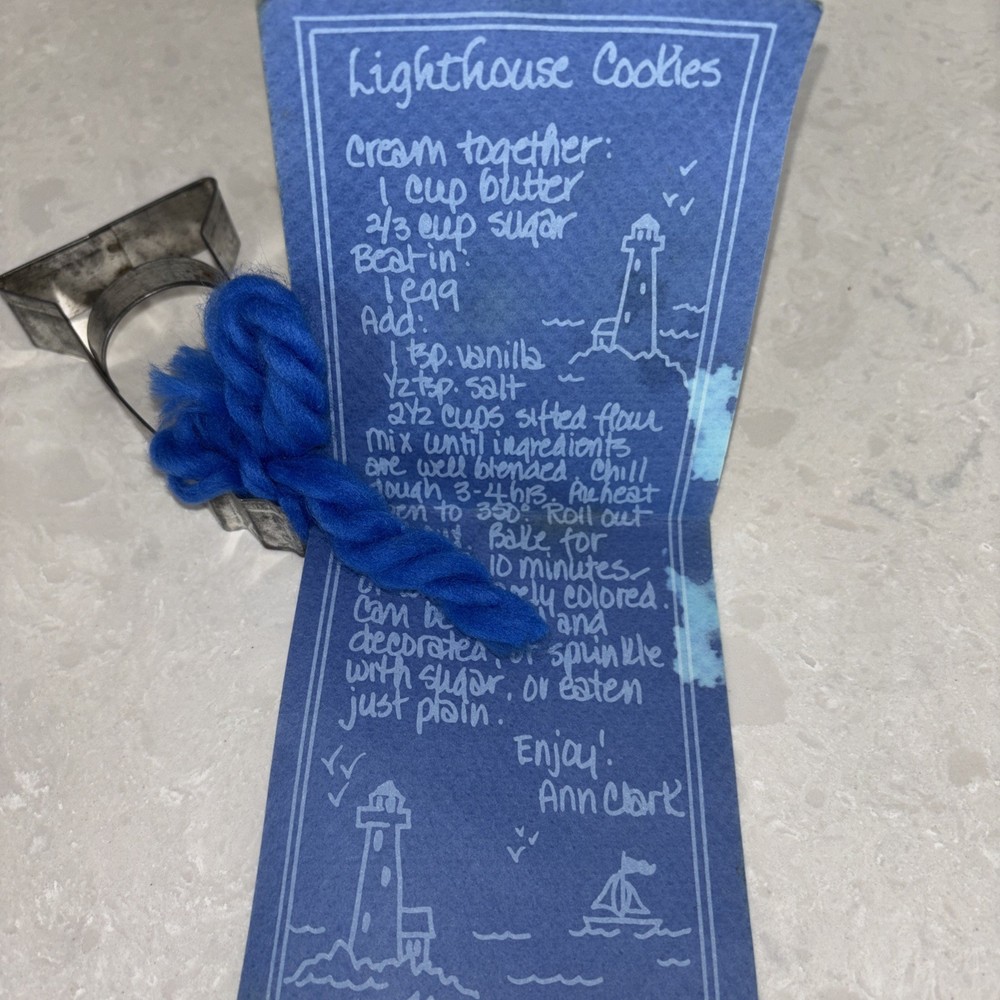 Lighthouse Cookies
Cream together:
1 cup butter
2/3 cup sugar
Beat in:
1 egg
Add:
1 tsp. vanilla
1/2 tsp. salt
2 1/2 cups sifted flour
mix until ingredients
are well blended. Chill
dough 3-4 hrs. Preheat
to 350°. Roll out
Bake for
10 minutes
colored.
Can be and
decorated, or sprinkle
with sugar, or eaten
just plain.
Enjoy!
Ann Clark